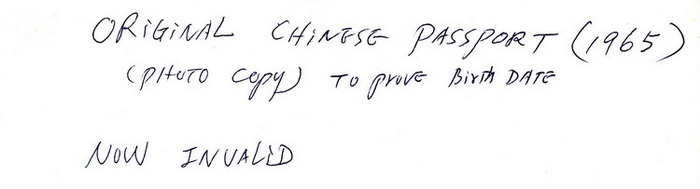 ORiGiNAL CHiNESE PASSPORT (1965)
(PHOTO COPY) TO PROVE BIRTH DATE
NOW INVALiD